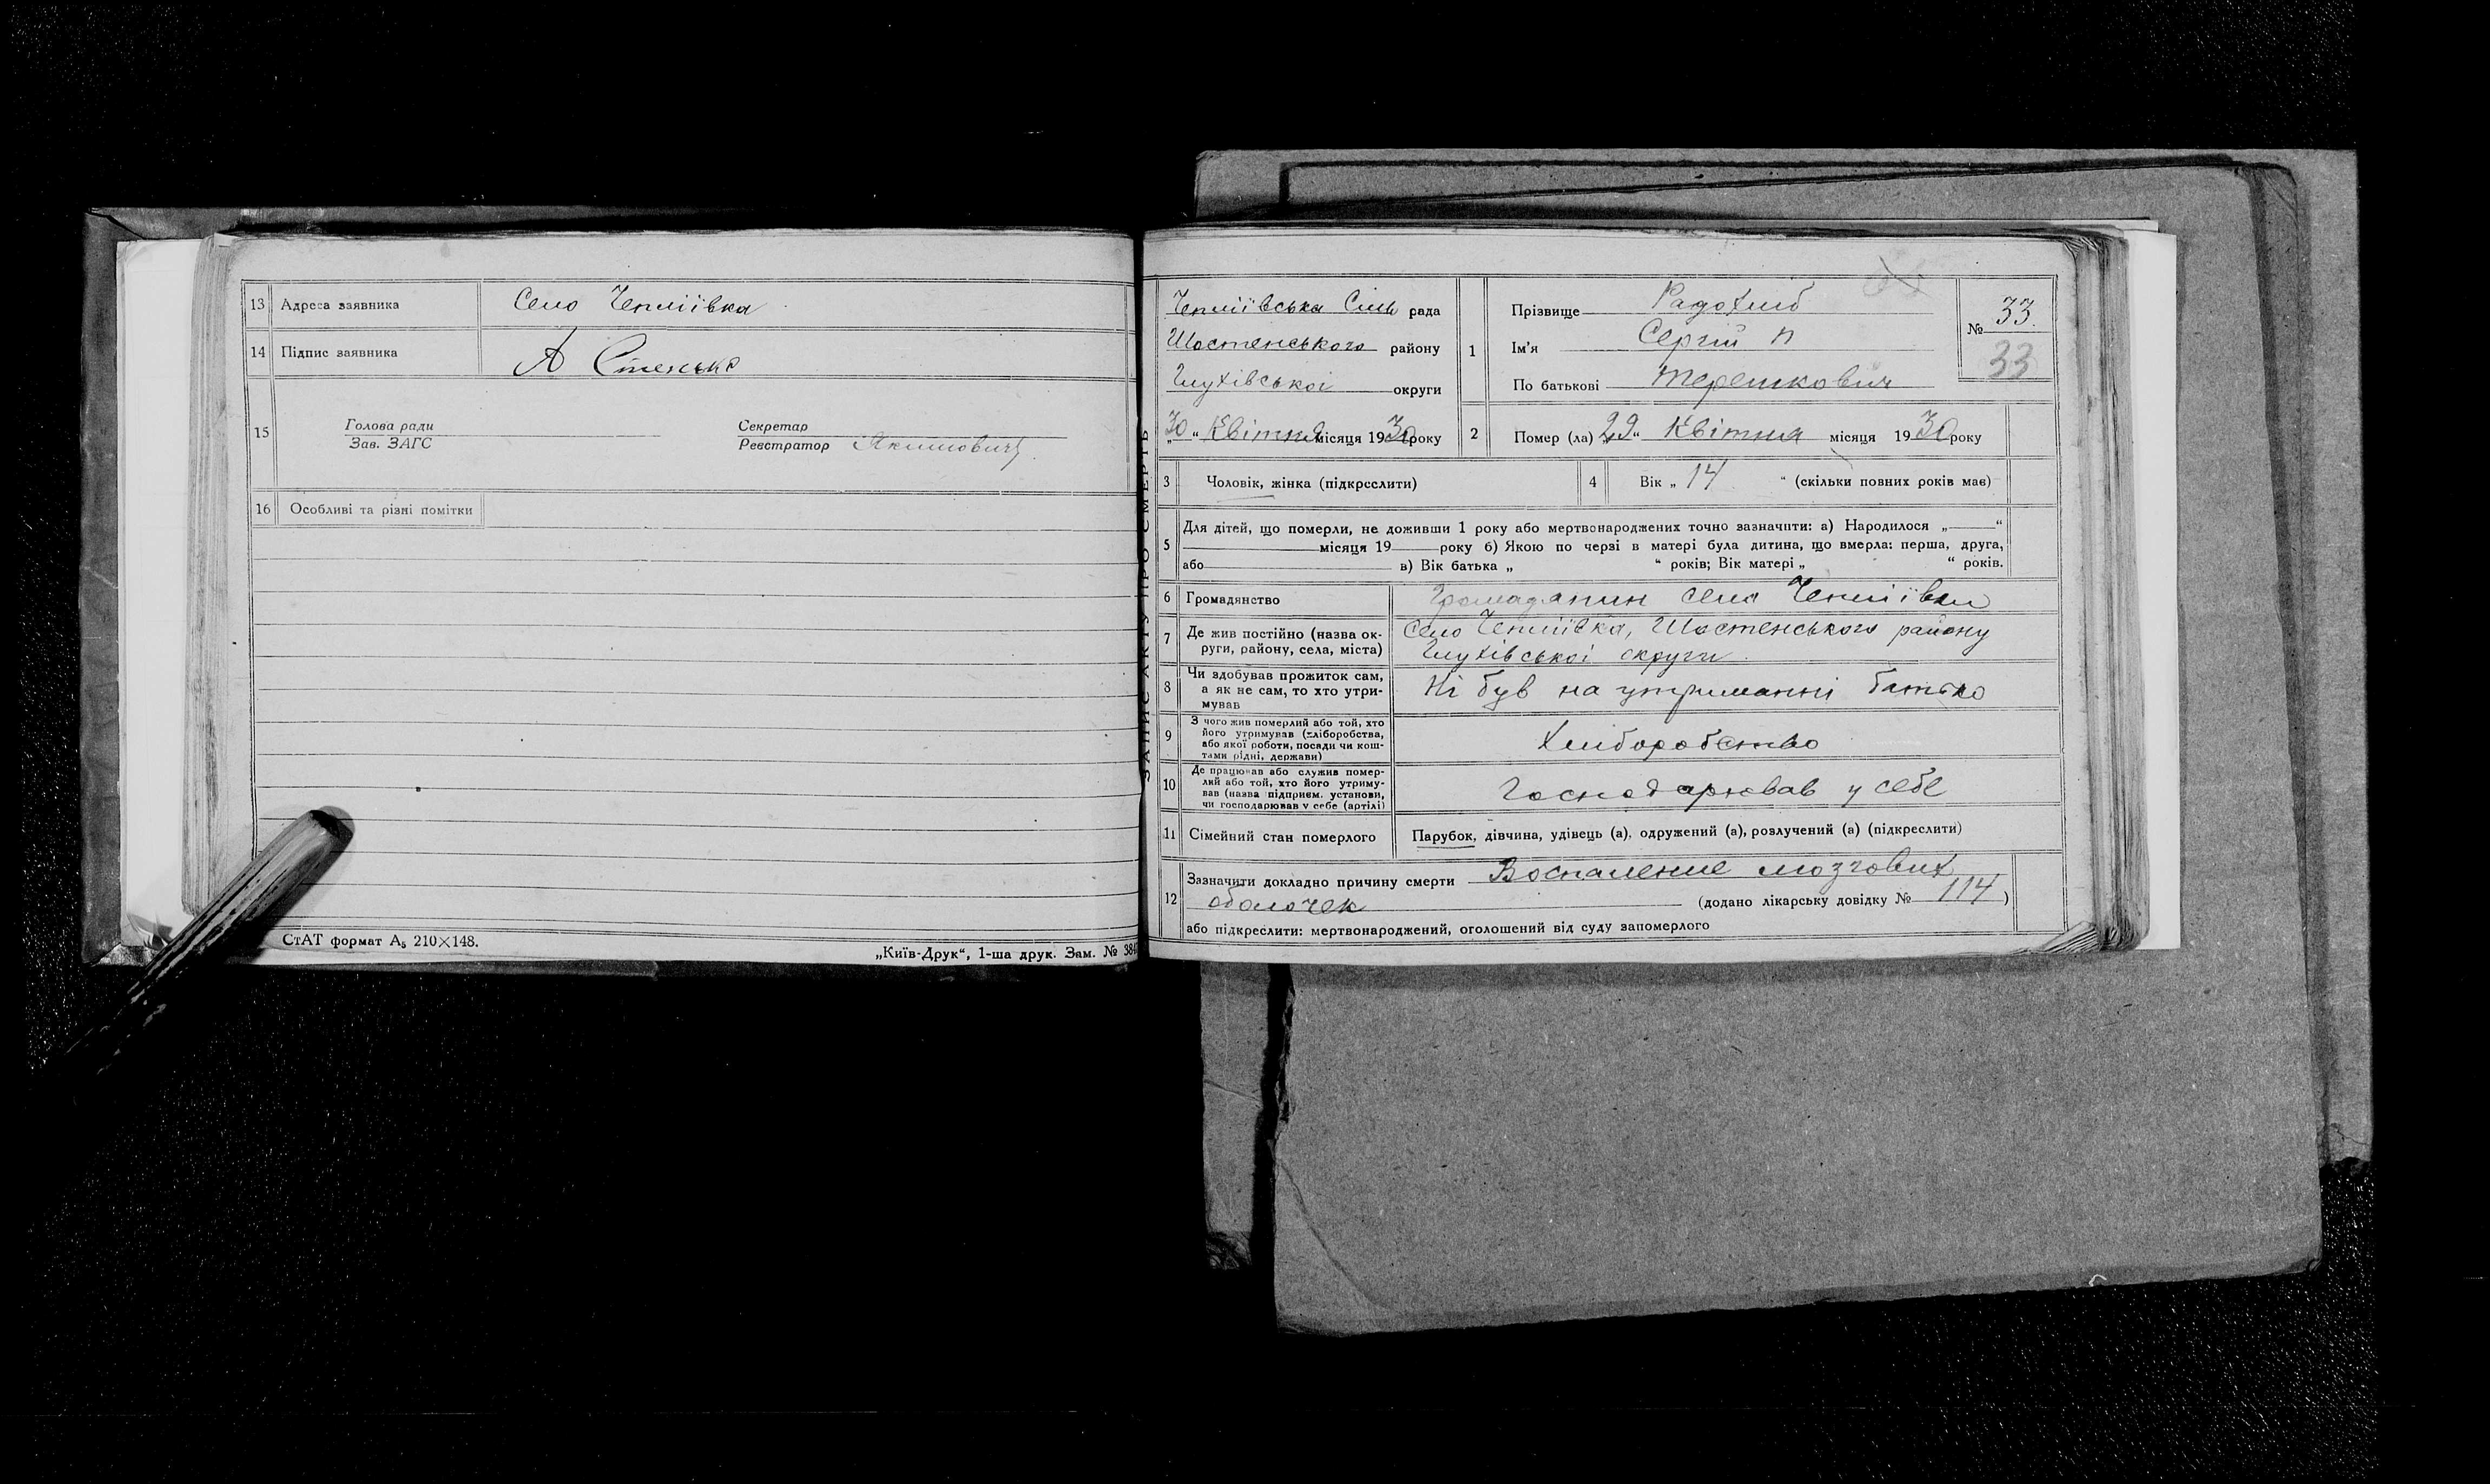 13 Адреса заявника Село Чепліївка
14 Підпис заявника А Стенько
15 Голова ради Секретар
Зав. ЗАГС Реєстратор Якимович
16 Особливі та різні помітки
СтАТ формат А₅ 210×148.
„Київ-Друк“, 1-ша друк. Зам. № 384
ЗАПИС АКТУ ПРО СМЕРТЬ
Чепліївська Сіль рада
Шостенського району
Глухівської округи
„30“ Квітня місяця 1930 року
1 Прізвище Радохліб
Ім'я Сергій
По батькові Терешкович
№ 33
33
2 Помер (ла) „29“ Квітня місяця 1930 року
3 Чоловік, жінка (підкреслити)
4 Вік „14“ (скільки повних років має)
5 Для дітей, що померли, не доживши 1 року або мертвонароджених точно зазначити: а) Народилося „ “
місяця 19 року б) Якою по черзі в матері була дитина, що вмерла: перша, друга,
або в) Вік батька „ “ років; Вік матері „ “ років.
6 Громадянство Громадянин села Чепліївки
7 Де жив постійно (назва ок- Село Чепліївка, Шостенського району
руги, району, села, міста) Глухівської округи
8 Чи здобував прожиток сам, Ні був на утриманні батька
а як не сам, то хто утри-
мував
9 З чого жив померлий або той, хто
його утримував (хліборобства, Хліборобство
або якої роботи, посади чи кош-
тами рідні, держави)
10 Де працював або служив помер-
лий або той, хто його утриму- Господарював у себе
вав (назва підприєм. установи,
чи господарював у себе (артілі)
11 Сімейний стан померлого Парубок, дівчина, удівець (а), одружений (а), розлучений (а) (підкреслити)
12 Зазначити докладно причину смерти Воспаление мозгових
оболочек (додано лікарську довідку № 114)
або підкреслити: мертвонароджений, оголошений від суду запомерлого